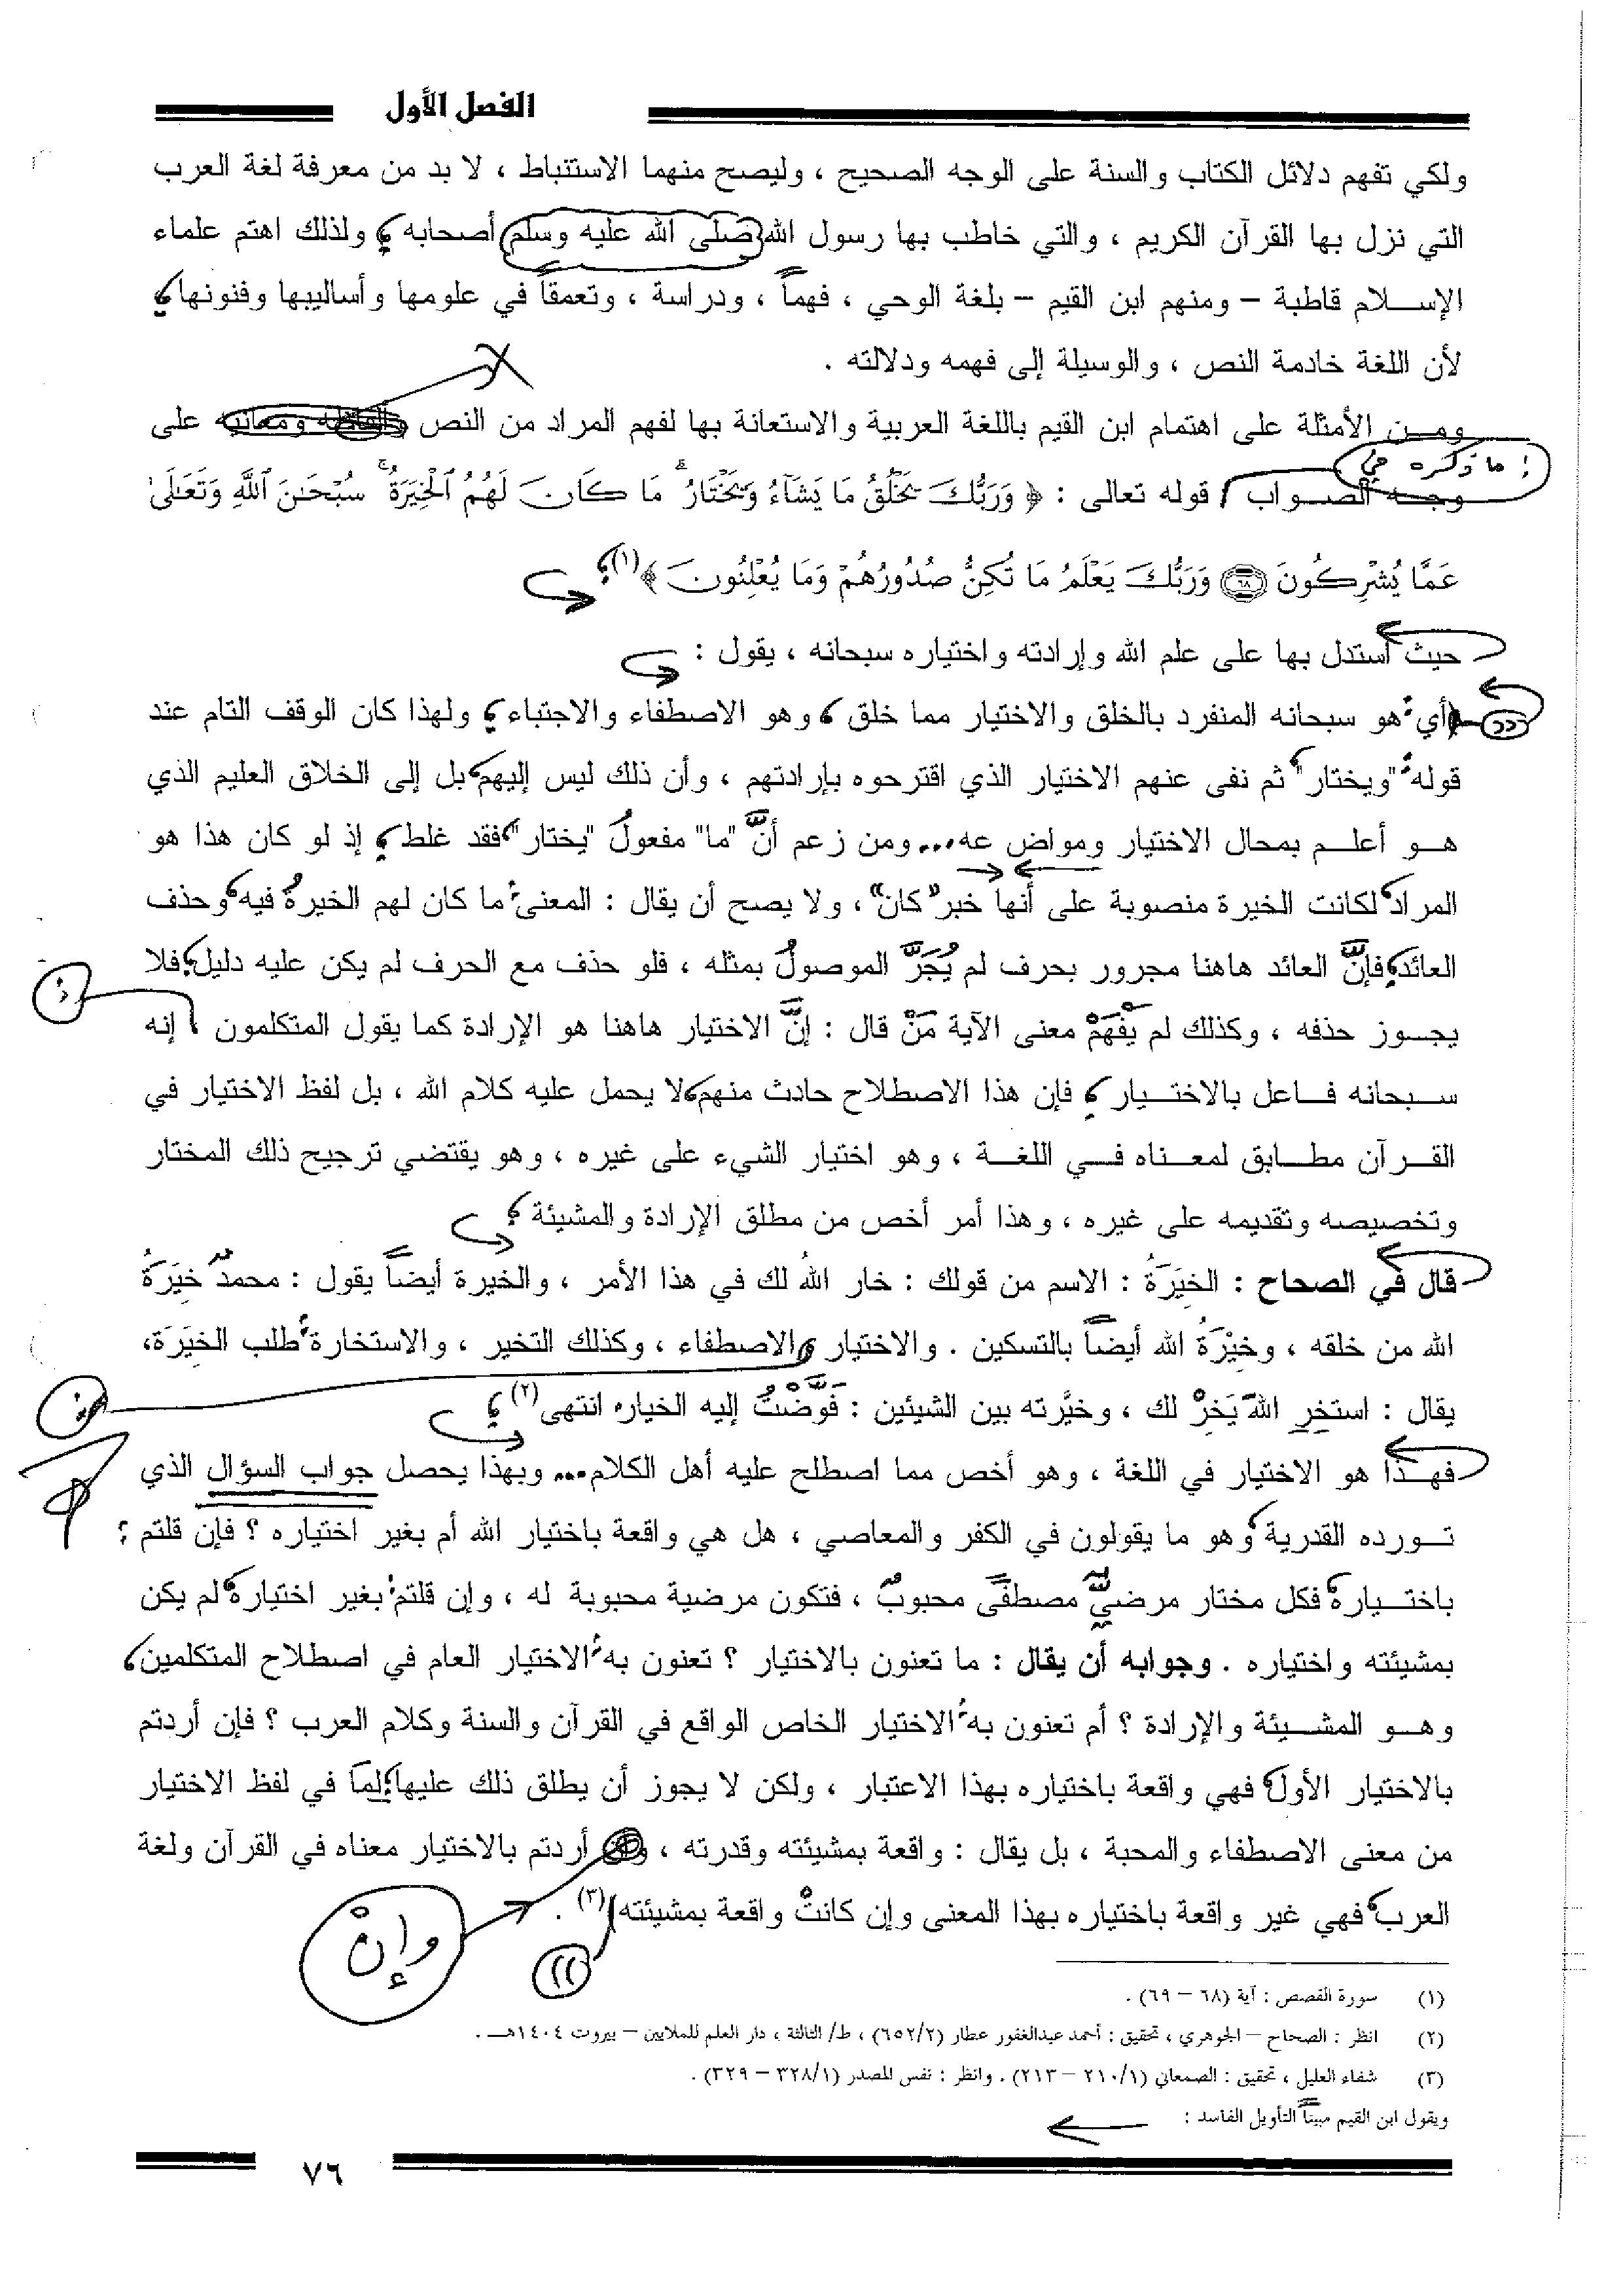 الفصل الأول
ولكي تفهم دلائل الكتاب والسنة على الوجه الصحيح ، وليصح منهما الاستنباط ، لا بد من معرفة لغة العرب
التي نزل بها القرآن الكريم ، والتي خاطب بها رسول الله صلى الله عليه وسلم أصحابه ؛ ولذلك اهتم علماء
الإســلام قاطبة – ومنهم ابن القيم – بلغة الوحي ، فهماً ، ودراسة ، وتعمقاً في علومها وأساليبها وفنونها ؛
لأن اللغة خادمة النص ، والوسيلة إلى فهمه ودلالته .
ومــن الأمثلة على اهتمام ابن القيم باللغة العربية والاستعانة بها لفهم المراد من النص وألفاظه ومعانيه على
: ما ذكره في
وجــه الصــواب قوله تعالى : ﴿ وَرَبُّكَ يَخْلُقُ مَا يَشَآءُ وَيَخْتَارُ ۗ مَا كَانَ لَهُمُ ٱلْخِيَرَةُ ۚ سُبْحَـٰنَ ٱللَّهِ وَتَعَـٰلَىٰ
عَمَّا يُشْرِكُونَ ۝٦٨ وَرَبُّكَ يَعْلَمُ مَا تُكِنُّ صُدُورُهُمْ وَمَا يُعْلِنُونَ ﴾(١)؛
حيث استدل بها على علم الله وإرادته واختياره سبحانه ، يقول :
((أي: هو سبحانه المنفرد بالخلق والاختيار مما خلق ، وهو الاصطفاء والاجتباء ؛ ولهذا كان الوقف التام عند
قوله: "ويختار" ، ثم نفى عنهم الاختيار الذي اقترحوه بإرادتهم ، وأن ذلك ليس إليهم ، بل إلى الخلاق العليم الذي
هــو أعلــم بمحال الاختيار ومواض عه... ومن زعم أنَّ "ما" مفعولُ "يختار" ، فقد غلط ؛ إذ لو كان هذا هو
المراد ، لكانت الخيرة منصوبة على أنها خبر "كان" ، ولا يصح أن يقال : المعنى: ما كان لهم الخيرةُ فيه ، وحذف
العائد ؛ فإنَّ العائد هاهنا مجرور بحرف لم يُجَرَّ الموصولُ بمثله ، فلو حذف مع الحرف لم يكن عليه دليل ؛ فلا
يجــوز حذفه ، وكذلك لم يفْهَمْ معنى الآية مَنْ قال : إنَّ الاختيار هاهنا هو الإرادة كما يقول المتكلمون : إنه
ســبحانه فــاعل بالاختــيار ؛ فإن هذا الاصطلاح حادث منهم ، لا يحمل عليه كلام الله ، بل لفظ الاختيار في
القــرآن مطــابق لمعــناه فــي اللغــة ، وهو اختيار الشيء على غيره ، وهو يقتضي ترجيح ذلك المختار
وتخصيصه وتقديمه على غيره ، وهذا أمر أخص من مطلق الإرادة والمشيئة ؛
قال في الصحاح : الخِيَرَةُ : الاسم من قولك : خار اللهُ لك في هذا الأمر ، والخيرة أيضاً يقول : محمدٌ خِيَرَةُ
الله من خلقه ، وخِيْرَةُ الله أيضاً بالتسكين . والاختيار والاصطفاء ، وكذلك التخير ، والاستخارة: طلب الخِيَرَة،
يقال : استخِرِ اللهَ يَخِرْ لك ، وخيَّرته بين الشيئين : فَوَّضْتُ إليه الخيار، انتهى(٢) ؛
فهــذا هو الاختيار في اللغة ، وهو أخص مما اصطلح عليه أهل الكلام... وبهذا يحصل جواب السؤال الذي
تــورده القدرية ، وهو ما يقولون في الكفر والمعاصي ، هل هي واقعة باختيار الله أم بغير اختياره ؟ فإن قلتم :
باختــياره ، فكل مختار مرضيٌّ مصطفًى محبوبٌ ، فتكون مرضية محبوبة له ، وإن قلتم: بغير اختياره ، لم يكن
بمشيئته واختياره . وجوابه أن يقال : ما تعنون بالاختيار ؟ تعنون به: الاختيار العام في اصطلاح المتكلمين ،
وهــو المشــيئة والإرادة ؟ أم تعنون به: الاختيار الخاص الواقع في القرآن والسنة وكلام العرب ؟ فإن أردتم
بالاختيار الأول ، فهي واقعة باختياره بهذا الاعتبار ، ولكن لا يجوز أن يطلق ذلك عليها ؛ لِمَا في لفظ الاختيار
من معنى الاصطفاء والمحبة ، بل يقال : واقعة بمشيئته وقدرته ، أردتم بالاختيار معناه في القرآن ولغة
وإنْ
العرب ، فهي غير واقعة باختياره بهذا المعنى وإن كانتْ واقعة بمشيئته))(٣) .
(١) سورة القصص : آية (٦٨ – ٦٩) .
(٢) انظر : الصحاح – الجوهري ، تحقيق : أحمد عبدالغفور عطار (٦٥٢/٢) ، ط/ الثالثة ، دار العلم للملايين – بيروت ١٤٠٤هــ .
(٣) شفاء العليل ، تحقيق : الصمعاني (٢١٠/١ – ٢١٣) . وانظر : نفس المصدر (٣٢٨/١ – ٣٢٩) .
ويقول ابن القيم مبيناً التأويل الفاسد :
٧٦